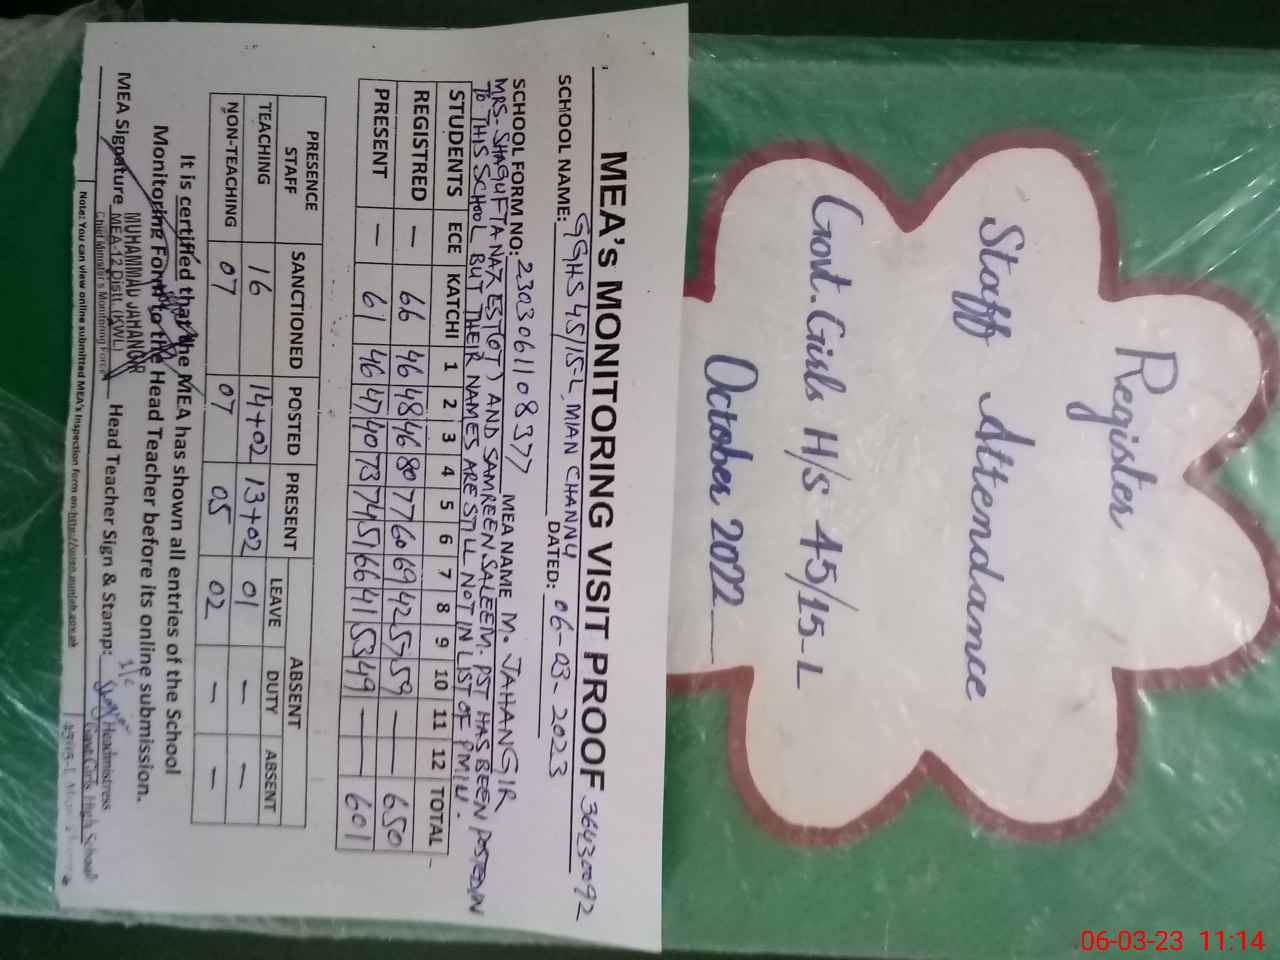 Register
Staff Attendance
Govt. Girls H/S 45/15-L
October 2022
MEA's MONITORING VISIT PROOF 36430092
SCHOOL NAME: GGHS 45/15-L, MIAN CHANNU DATED: 06-03-2023
SCHOOL FORM NO: 2303061108377 MEA NAME M. JAHANGIR
MRS. SHAGUFTA NAZ EST(OT) AND SAMREEN SALEEM. PST HAS BEEN POSTED IN
TO THIS SCHOOL BUT THEIR NAMES ARE STILL NOT IN LIST OF PMIU.
STUDENTS ECE KATCHI 1 2 3 4 5 6 7 8 9 10 11 12 TOTAL
REGISTRED — 66 46 48 46 80 77 60 69 42 57 59 — — 650
PRESENT — 61 46 47 40 73 74 51 66 41 53 49 — — 601
PRESENCE STAFF SANCTIONED POSTED PRESENT ABSENT
LEAVE DUTY ABSENT
TEACHING 16 14+02 13+02 01 — —
NON-TEACHING 07 07 05 02 — —
It is certified that the MEA has shown all entries of the School
Monitoring Form to the Head Teacher before its online submission.
MUHAMMAD JAHANGIR
MEA Signature MEA-12 Distt. (KWL) Head Teacher Sign & Stamp: I/C
Chief Minister's Monitoring Force
Headmistress
Govt Girls High School
45/15-L
Note: You can view online submitted MEA's Inspection form on:
06-03-23 11:14